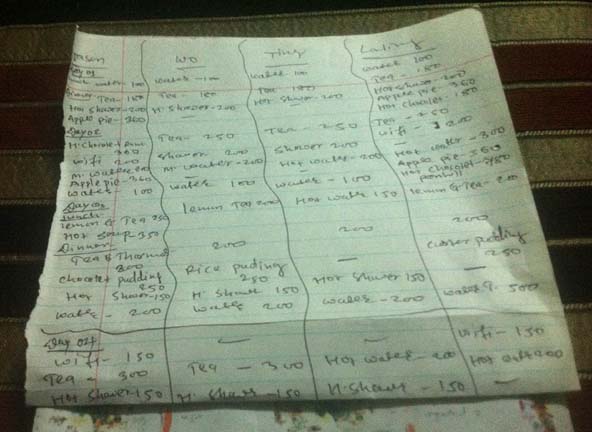 Day 01
water 100
Tea - 150
Hot Shower-200
Apple pie-360
Day 02
360
wifi 200
Apple pie-360
water 100
Day 03
Lunch
Lemon G Tea 250
Hot Soup 350
Dinner
Tea
800
chocolet pudding
250
Hot Shower-150
water - 200
Day 04
wifi - 150
Tea - 300
Hot Shower 150
water - 100
Tea - 150
H. Shower-200
—
Tea - 250
Shower 200
M. water-200
—
water 100
Lemon Tea 200
200
Rice puding
250
H. Shower 150
water 200
—
Tea - 300
H. Shower - 150
water 100
Hot Shower-200
Tea - 250
Shower 200
Hot water-200
—
water - 100
Hot water 150
200
—
Hot Shower 150
water - 200
—
Hot water - 200
H. Shower - 150
water 100
Tea - 150
Hot Shower-200
Apple pie - 360
Hot Chocolet - 150
Tea - 250
wifi - 200
Hot water - 300
Apple pie - 360
Hot Chocolet
Lemon G Tea - 200
200
pudding
250
—
water 500
wifi - 150
Hot water 200
—